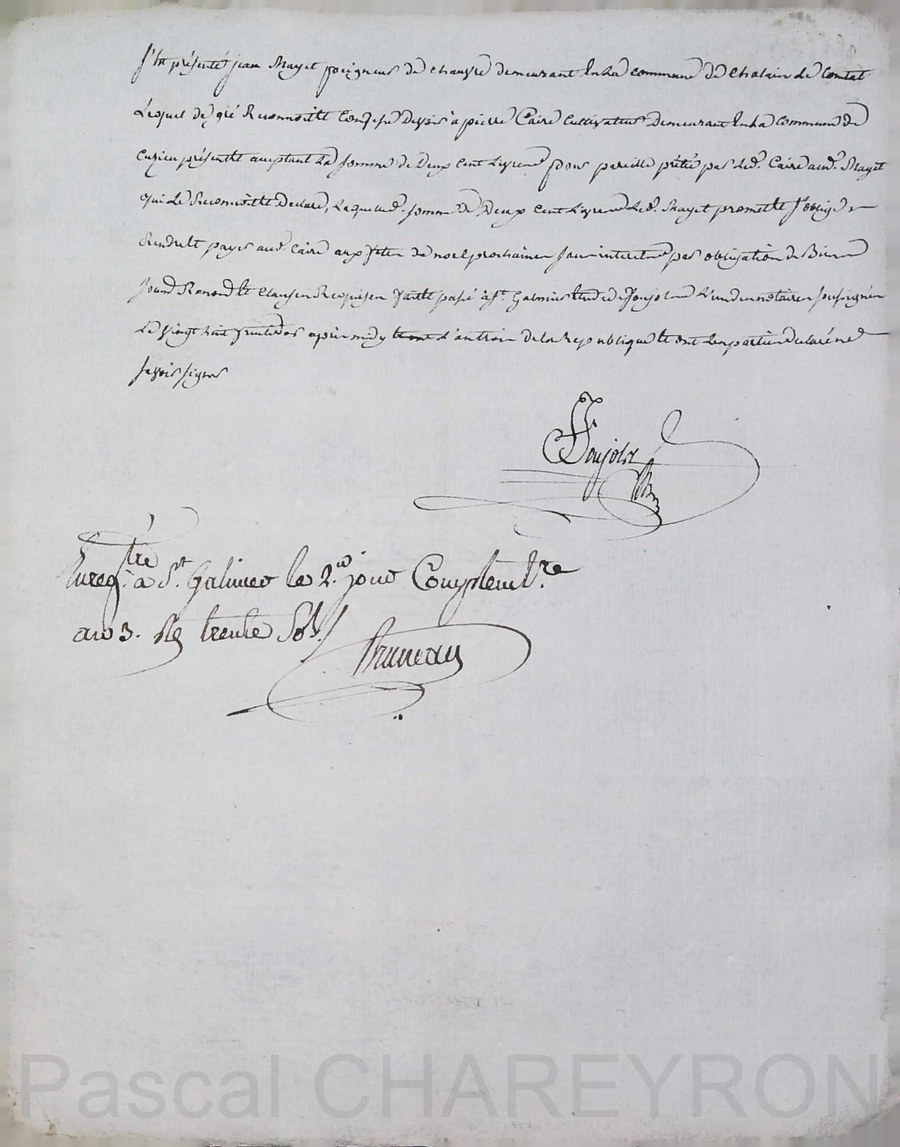 S'est présenté jean Mayet peigneur de chanvre demeurant En La commune de Chalain Le Comtal
Lequel de gré Reconnoitt Confesse Devoir a pierre Caire Cultivateur Demeurant En La commune de
Cuzieu présentt acceptant La somme de Deux Cent Livres pour pareille prété par Led. Caire aud. Mayet
qui Le Reconnoitt Declare, Laquelle somme de Deux Cent Livres Led. Mayet promett S'oblige
Rendre Et payer aud. Caire aux fetes de noel prochaines Sans interets par obligation de Biens
Soumd Renond Et Clauses Requises fait Et passé a St. Galmier Etude de Joujold L'un des notaires soussignés
Le vingt huit fructidor apres midy L'an trois de la Republique Et ont Les parties declaré ne
sçavoir signer
Joujold
Enregtré à St. Galmier le 2e. jour Complemt.re
an 3. Rç trente Sols
Bruneau
Pascal CHAREYRON